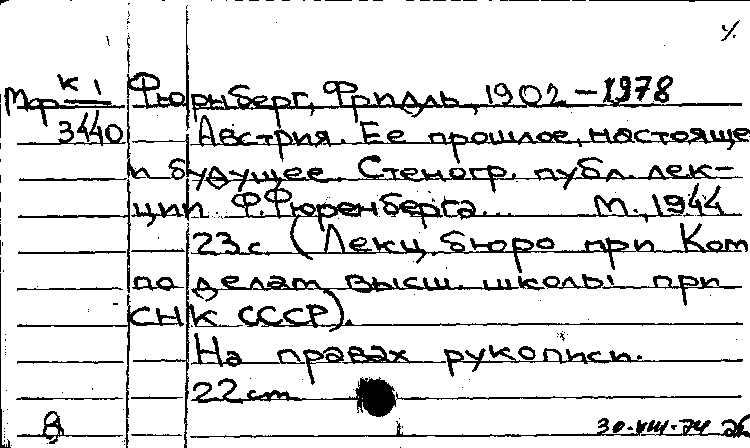 К 1
Мфр Фюрнберг, Фридль, 1902 – 1978
3440 Австрия. Ее прошлое, настояще
и будущее. Стеногр. публ. лек-
ции Ф. Фюренберга... М., 1944
23 с. (Лекц. бюро при Ком
по делам высш. школы при
СНК СССР).
На правах рукописи.
22 cm
8 30-VIII-74